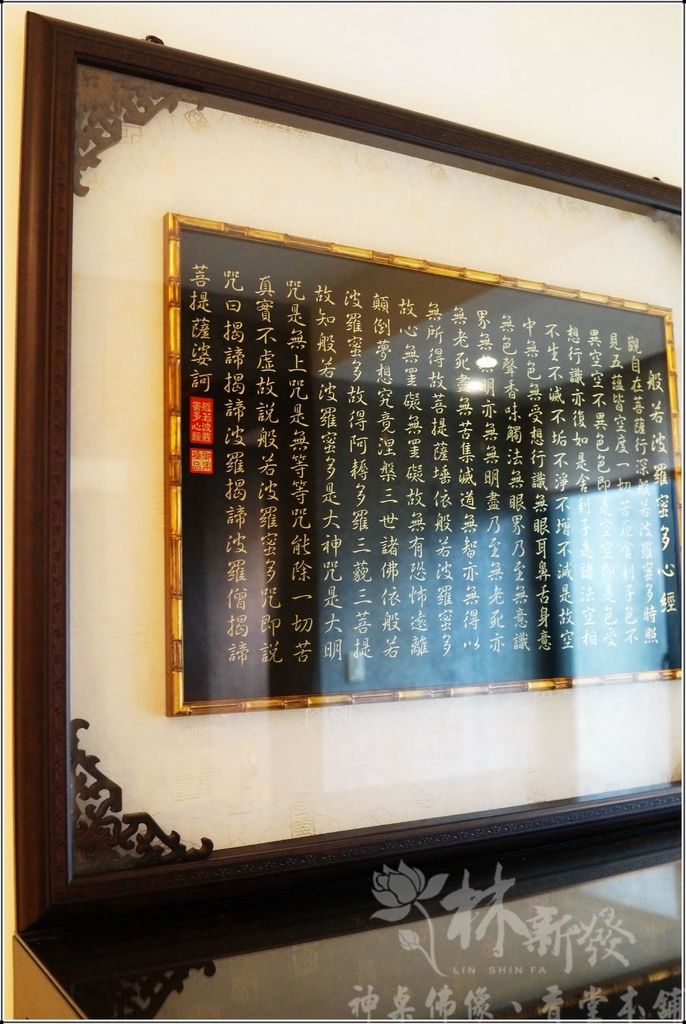 般若波羅蜜多心經
觀自在菩薩行深般若波羅蜜多時照
見五蘊皆空度一切苦厄舍利子色不
異空空不異色色即是空空即是色受
想行識亦復如是舍利子是諸法空相
不生不滅不垢不淨不增不減是故空
中無色無受想行識無眼耳鼻舌身意
無色聲香味觸法無眼界乃至無意識
界無無明亦無無明盡乃至無老死亦
無老死盡無苦集滅道無智亦無得以
無所得故菩提薩埵依般若波羅蜜多
故心無罣礙無罣礙故無有恐怖遠離
顛倒夢想究竟涅槃三世諸佛依般若
波羅蜜多故得阿耨多羅三藐三菩提
故知般若波羅蜜多是大神咒是大明
咒是無上咒是無等等咒能除一切苦
真實不虛故說般若波羅蜜多咒即說
咒曰揭諦揭諦波羅揭諦波羅僧揭諦
菩提薩婆訶
般若波羅
蜜多心經
林新發
LIN SHIN FA
神桌佛像、香堂本舖